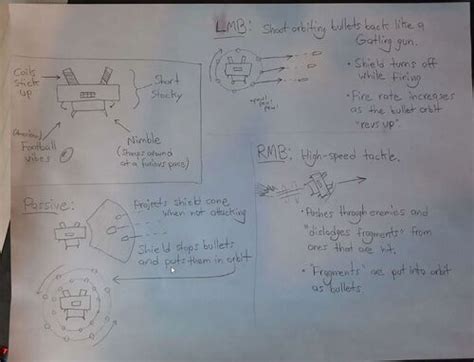 Coils
stick
up
Short
Stocky
(American)
Football
vibes
Nimble
at a furious pace)
Passive:
Projects shield cone
when not attacking
Shield stops bullets
and puts them in orbit
LMB: Shoot orbiting bullets back like a
Gatling gun.
• Shield turns off
while firing
• Fire rate increases
as the bullet orbit
"revs up".
RMB: High-speed tackle.
• Pushes through enemies and
"dislodges fragments" from
ones that are hit.
• "Fragments" are put into orbit
as bullets.